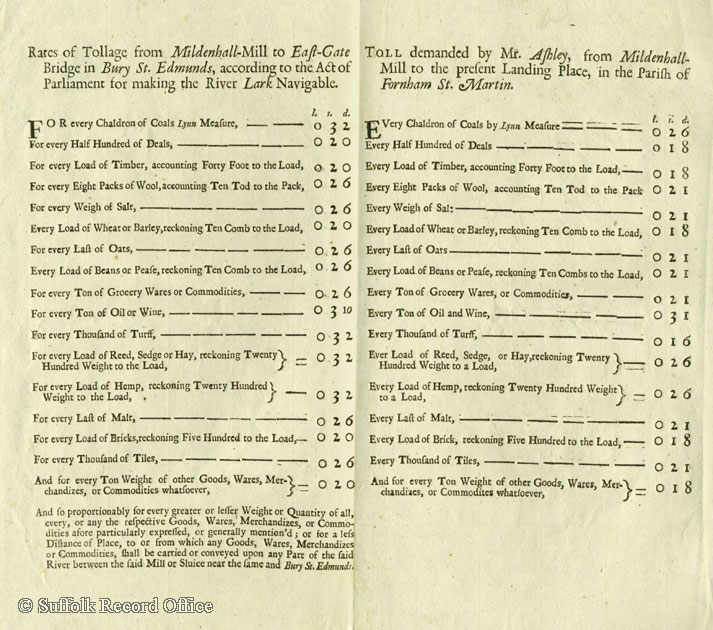 Rates of Tollage from Mildenhall-Mill to Eaſt-Gate
Bridge in Bury St. Edmunds, according to the Act of
Parliament for making the River Lark Navigable.
l. s. d.
FOR every Chaldron of Coals Lynn Meaſure, 0 3 2
For every Half Hundred of Deals, 0 2 0
For every Load of Timber, accounting Forty Foot to the Load, 0 2 0
For every Eight Packs of Wool, accounting Ten Tod to the Pack, 0 2 6
For every Weigh of Salt, 0 2 6
Every Load of Wheat or Barley, reckoning Ten Comb to the Load, 0 2 0
For every Laſt of Oats, 0 2 6
Every Load of Beans or Peaſe, reckoning Ten Comb to the Load, 0 2 6
For every Ton of Grocery Wares or Commodities, 0 2 6
For every Ton of Oil or Wine, 0 3 10
For every Thouſand of Turff, 0 3 2
For every Load of Reed, Sedge or Hay, reckoning Twenty
Hundred Weight to the Load, 0 3 2
For every Load of Hemp, reckoning Twenty Hundred
Weight to the Load, 0 3 2
For every Laſt of Malt, 0 2 6
For every Load of Bricks, reckoning Five Hundred to the Load, 0 2 0
For every Thouſand of Tiles, 0 2 6
And for every Ton Weight of other Goods, Wares, Mer-
chandizes, or Commodities whatſoever, 0 2 0
And ſo proportionably for every greater or leſſer Weight or Quantity of all,
every, or any the reſpective Goods, Wares, Merchandizes, or Commo-
dities afore particularly expreſſed, or generally mention'd; or for a leſs
Diſtance of Place, to or from which any Goods, Wares, Merchandizes
or Commodities, ſhall be carried or conveyed upon any Part of the ſaid
River between the ſaid Mill or Sluice near the ſame and Bury St. Edmunds.
TOLL demanded by Mr. Aſhley, from Mildenhall-
Mill to the preſent Landing Place, in the Pariſh of
Fornham St. Martin.
l. s. d.
EVery Chaldron of Coals by Lynn Meaſure 0 2 6
Every Half Hundred of Deals 0 1 8
Every Load of Timber, accounting Forty Foot to the Load, 0 1 8
Every Eight Packs of Wool, accounting Ten Tod to the Pack 0 2 1
Every Weigh of Salt 0 2 1
Every Load of Wheat or Barley, reckoning Ten Comb to the Load, 0 1 8
Every Laſt of Oats 0 2 1
Every Load of Beans or Peaſe, reckoning Ten Combs to the Load, 0 2 1
Every Ton of Grocery Wares, or Commodities, 0 2 1
Every Ton of Oil and Wine, 0 3 1
Every Thouſand of Turff, 0 1 6
Ever Load of Reed, Sedge, or Hay, reckoning Twenty
Hundred Weight to a Load, 0 2 6
Every Load of Hemp, reckoning Twenty Hundred Weight
to a Load, 0 2 6
Every Laſt of Malt, 0 2 1
Every Load of Brick, reckoning Five Hundred to the Load, 0 1 8
Every Thouſand of Tiles, 0 2 1
And for every Ton Weight of other Goods, Wares, Mer-
chandizes, or Commodites whatſoever, 0 1 8
© Suffolk Record Office